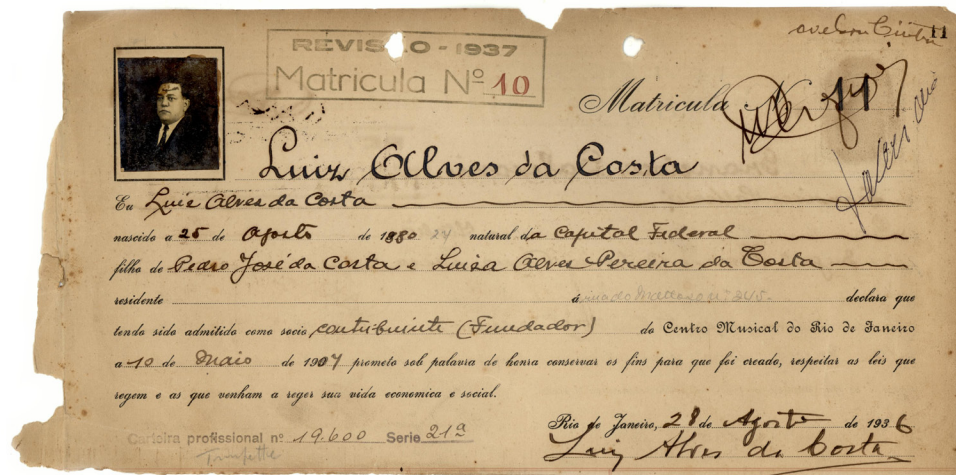 11
REVISÃO - 1937
Matricula Nº 10
Matricula
Luiz Alves da Costa
Eu Luiz Alves da Costa
nascido a 25 de Agosto de 1880 natural da Capital Federal
filho de Pedro José da Costa e Luiza Alves Pereira da Costa
residente á nº 245. declara que
tendo sido admitido como socio contribuinte (Fundador) do Centro Musical do Rio de Janeiro
a 10 de Maio de 1907 prometo sob palavra de honra conservar os fins para que foi creado, respeitar as leis que
regem e as que venham a reger sua vida economica e social.
Rio de Janeiro, 28 de Agosto de 1936
Carteira profissional nº 19.600 Serie 21ª
Luiz Alves da Costa